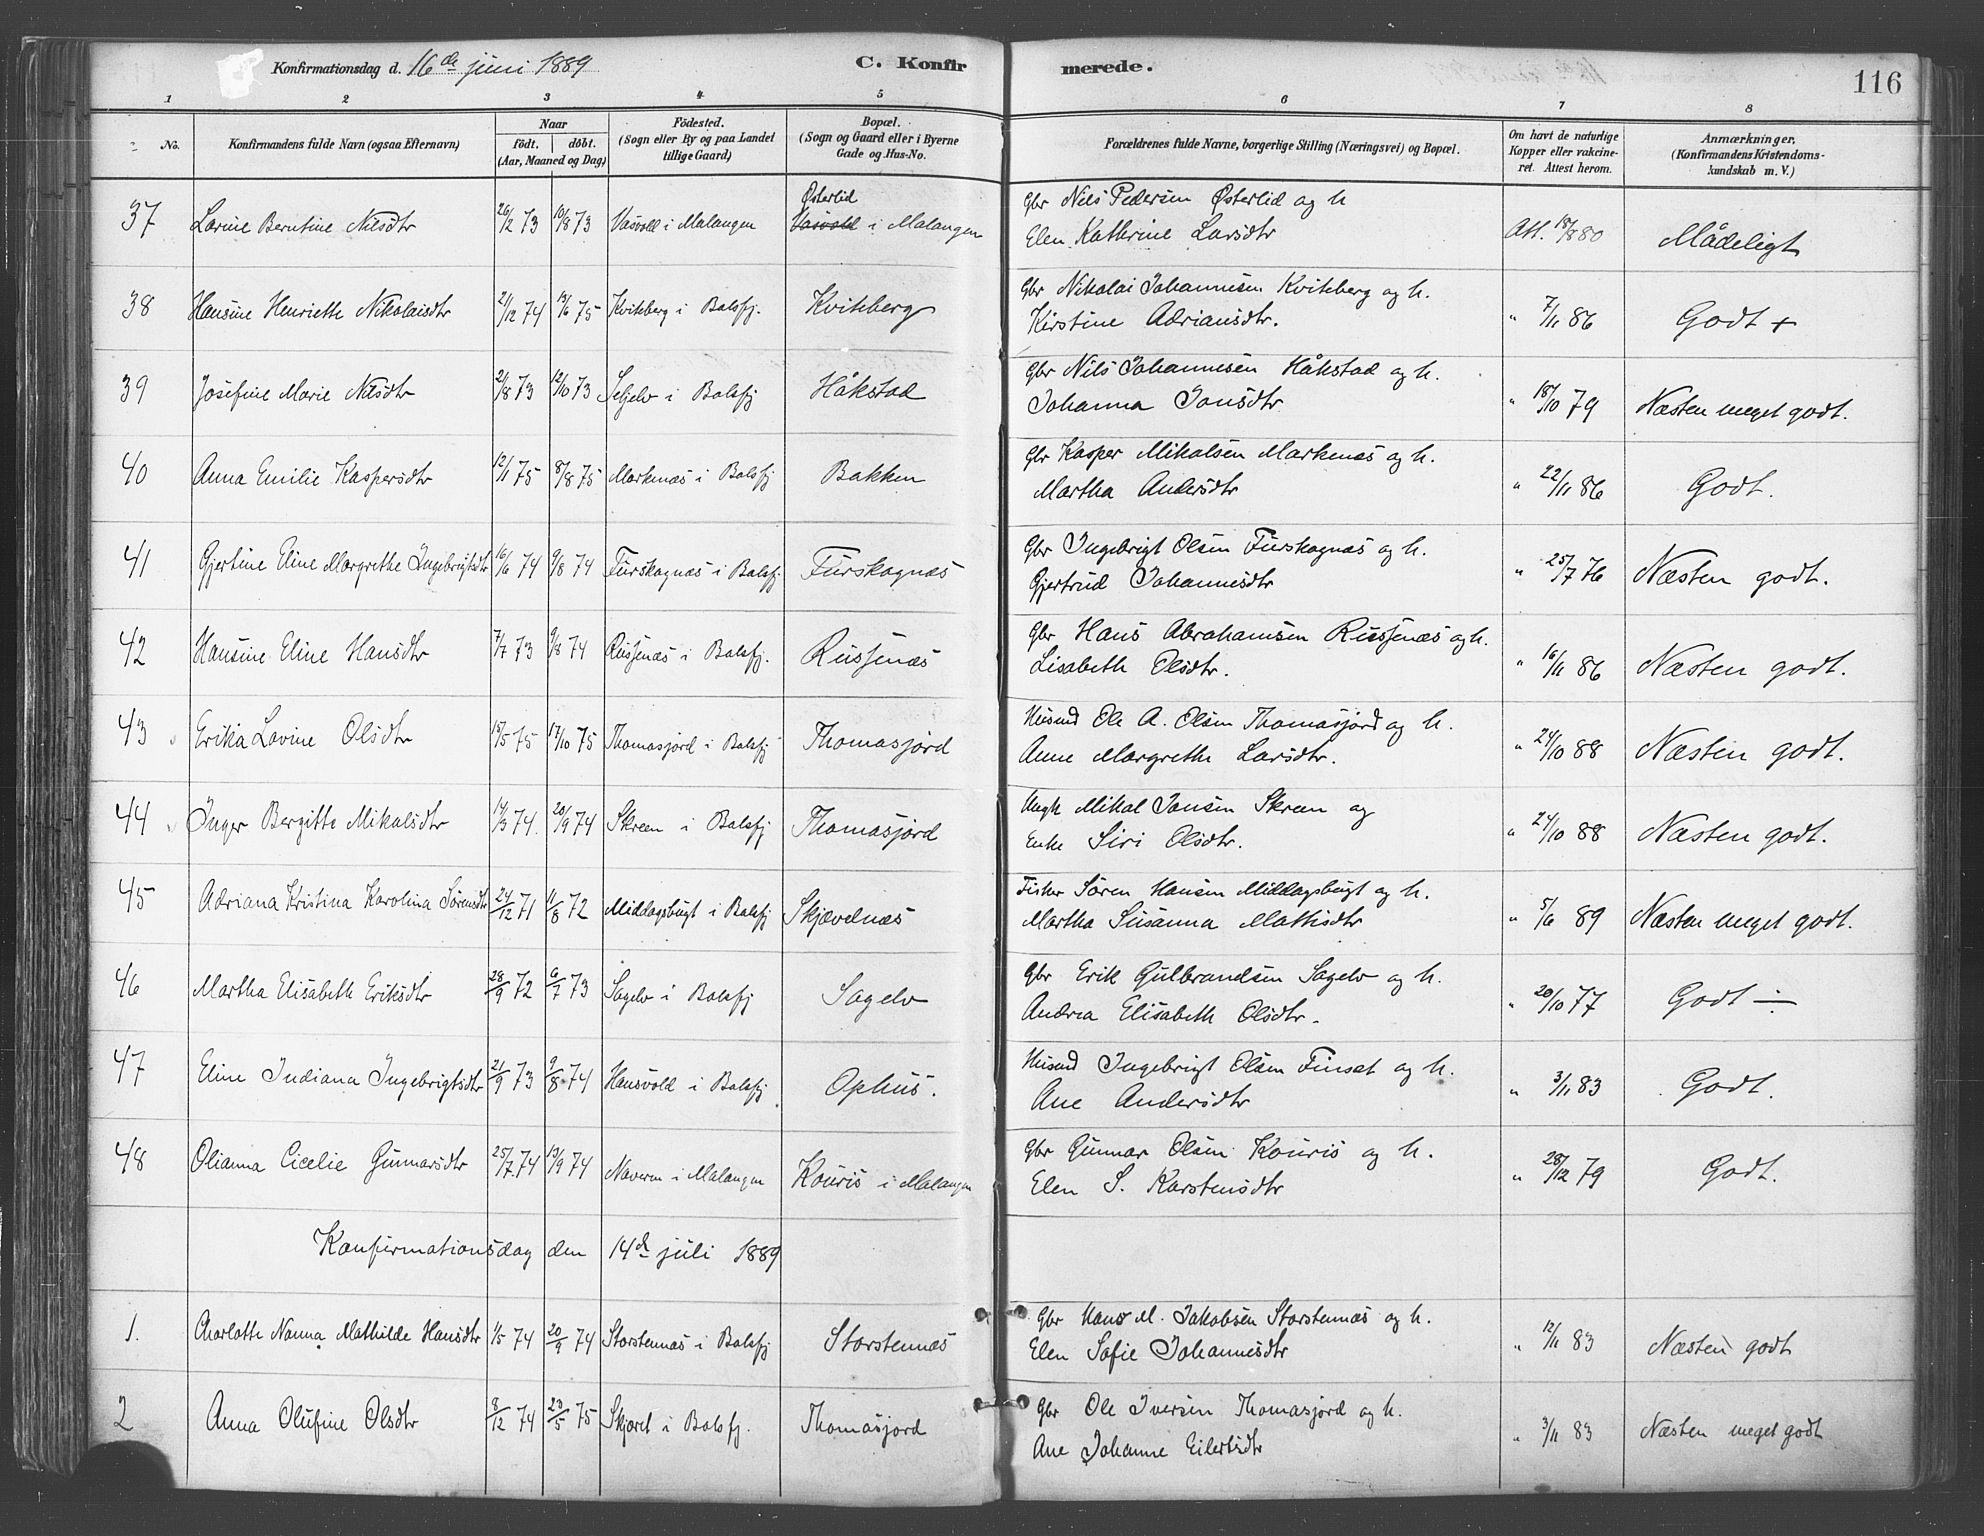 Konfirmationsdag d. 16de juni 1889 C. Konfirmerede. 116
1 2 3 4 5 6 7 8
No. Konfirmandens fulde Navn (ogsaa Efternavn) Naar födt. döbt. (Aar, Maaned og Dag) Födested. (Sogn eller By og paa Landet tillige Gaard) Bopæl. (Sogn og Gaard eller i Byerne Gade og Hus-No. Forældrenes fulde Navne, borgerlige Stilling (Næringsvei) og Bopæl. Om havt de naturlige Kopper eller vakcineret. Attest herom. Anmærkninger. (Konfirmandens Kristendomskundskab m. V.)
Østerlid Gbr Nils Pedersen Østerlid og h
37 Lavine Berntine Nilsdtr 26/2 73 10/8 73 Vasvold i Malangen Vasvold i Malangen Elen Kathrine Larsdtr Att. 18/8 80 Mådeligt
Gbr Nikolai Johannesen Kviteberg og h.
38 Hansine Henriette Nikolaisdtr 21/12 74 13/6 75 Kviteberg i Balsfj. Kviteberg Kirstine Adriansdtr. " 7/11 86 Godt +
Gbr Nils Johannesen Håkstad og h.
39 Josefine Marie Nilsdtr 21/8 73 12/10 73 Seljelv i Balsfj Håkstad Johanna Jonsdtr " 18/10 79 Næsten meget godt.
Gbr Kasper Mikalsen Markenæs og h.
40 Anna Emilie Kaspersdtr 12/1 75 8/8 75 Markenæs i Balsfj Bakken Martha Andersdtr " 22/11 86 Godt.
Gbr Ingebrigt Olsen Furskognæs og h.
41 Gjertine Eline Margrethe Ingebrigtsdtr 16/6 74 9/8 74 Furskognæs i Balsfj. Furskognæs Gjertrud Johannesdtr " 25/7 76 Næsten godt.
Gbr Hans Abrahamsen Russenæs og h.
42 Hansine Eline Hansdtr 7/7 73 9/8 74 Russenæs i Balsfj. Russenæs Lisabeth Olsdtr. " 16/11 86 Næsten godt.
Husmd Ole A. Olsen Thomasjord og h.
43 Erika Lovine Olsdtr 15/5 75 17/10 75 Thomasjord i Balsfj Thomasjord Anne Margrethe Larsdtr. " 24/10 88 Næsten godt.
Ungk Mikal Jonsen Skreen og
44 Inger Bergitte Mikalsdtr 14/3 74. 20/9 74 Skreen i Balsfj Thomasjord Enke Siri Olsdtr. " 24/10 88 Næsten godt.
Fisker Søren Hansen Middagsbugt og h.
45 Adriana Kristina Karolina Sørensdtr 24/12 71 11/8 72 Middagsbugt i Balsfj Skjævelnæs Martha Susanna Mathisdtr " 5/6 89 Næsten meget godt.
Gbr Erik Gulbrandsen Sagelv og h.
46 Martha Elisabeth Eriksdtr 28/9 72 6/7 73 Sagelv i Balsfj Sagelv Andrea Elisabeth Olsdtr. " 20/10 77 Godt ÷
Husmd Ingebrigt Olsen Finset og h.
47 Eline Indiana Ingebrigtsdtr 21/9 73 9/8 74 Hansvold i Balsfj Ophus. Ane Andersdtr " 3/11 83 Godt.
Gbr Gunnar Olsen Kouris og h.
48 Olianna Cicelie Gunnarsdtr 25/7 74 13/9 74 Naveren i Malangen Kouris i Malangen Elen S. Karstensdtr " 28/12 79 Godt.
Konfirmationsdag den 14de juli 1889
Gbr Hans M. Jakobsen Storstennæs og h.
1. Charlotte Nanna Mathilde Hansdtr 1/5 74 20/9 74 Storstennæs i Balsfj Storstennæs Elen Sofie Johannesdtr " 12/11 83 Næsten godt
Gbr Ole Iversen Thomasjord og h.
2 Anna Olufine Olsdtr 8/12 74 23/5 75 Skjæret i Balsfj. Thomasjord Ane Johanne Eilertsdtr " 3/11 83 Næsten meget godt